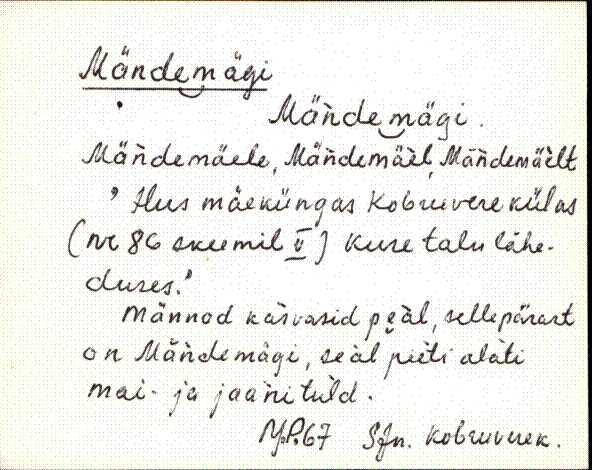 Mändemägi
Mäǹdemägi.
Mäǹdemäele, Mäǹdemäèl, Mäǹdemäèlt
"Ilus mäeküngas Kobruvere külas
(nr 86 skeemil V) Kure talu lähe-
duses."
Männod kasvasid peàl, sellepärast
on Mäǹdemägi, seàl pieti alati
mai- ja jaànituld.
M.P.67 Sjn. Kobruverek.